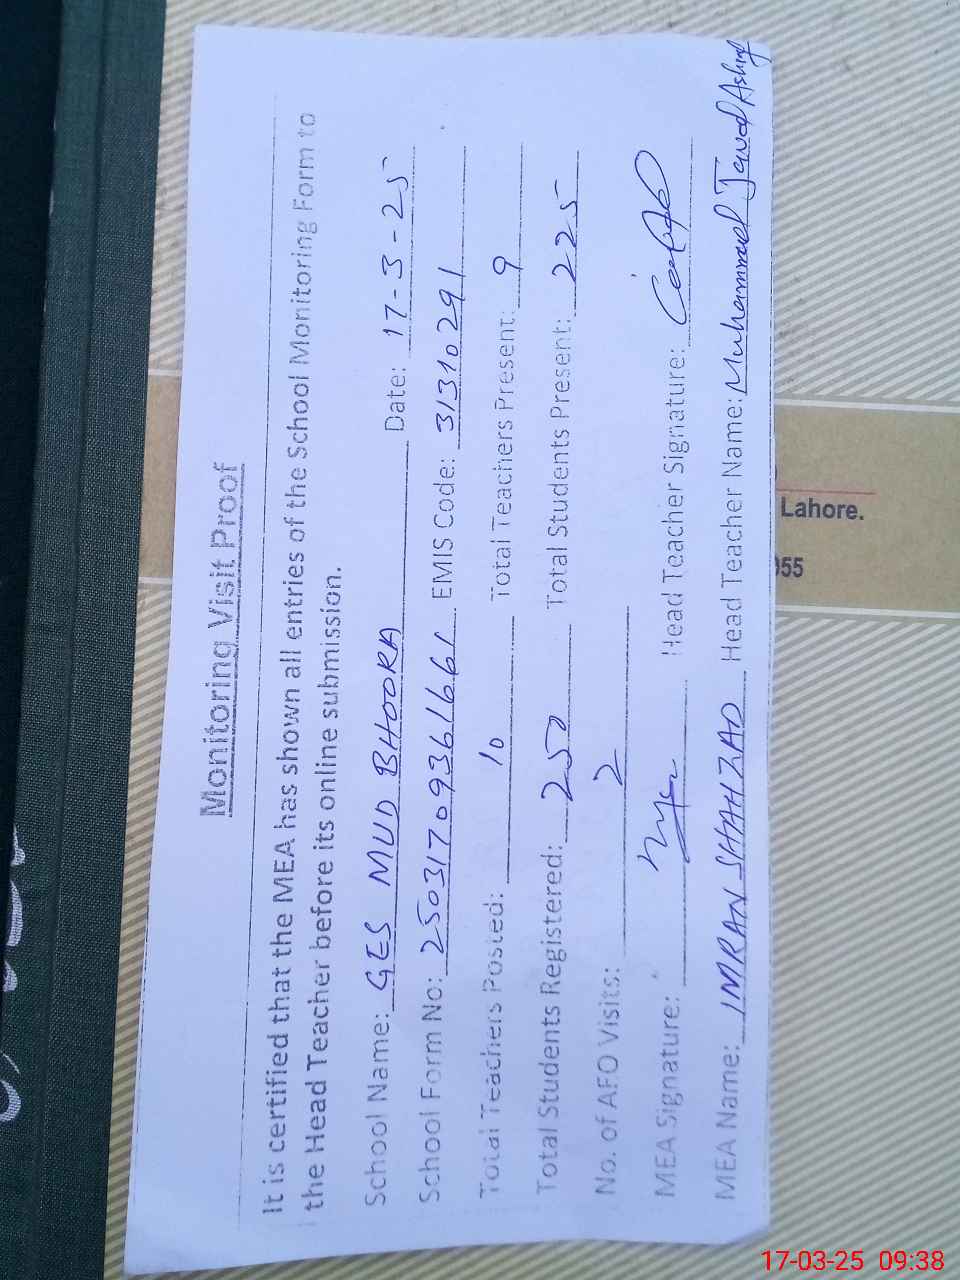 Monitoring Visit Proof
It is certified that the MEA has shown all entries of the School Monitoring Form to
the Head Teacher before its online submission.
School Name: GES MUD BHOORA Date: 17-3-25
School Form No: 25031709361661 EMIS Code: 31310291
Total Teachers Posted: 10 Total Teachers Present: 9
Total Students Registered: 250 Total Students Present: 225
No. of AEO Visits: 2
MEA Signature: Head Teacher Signature:
MEA Name: IMRAN SHAHZAD Head Teacher Name: Muhammad Javed Ashraf
Lahore.
055
17-03-25 09:38